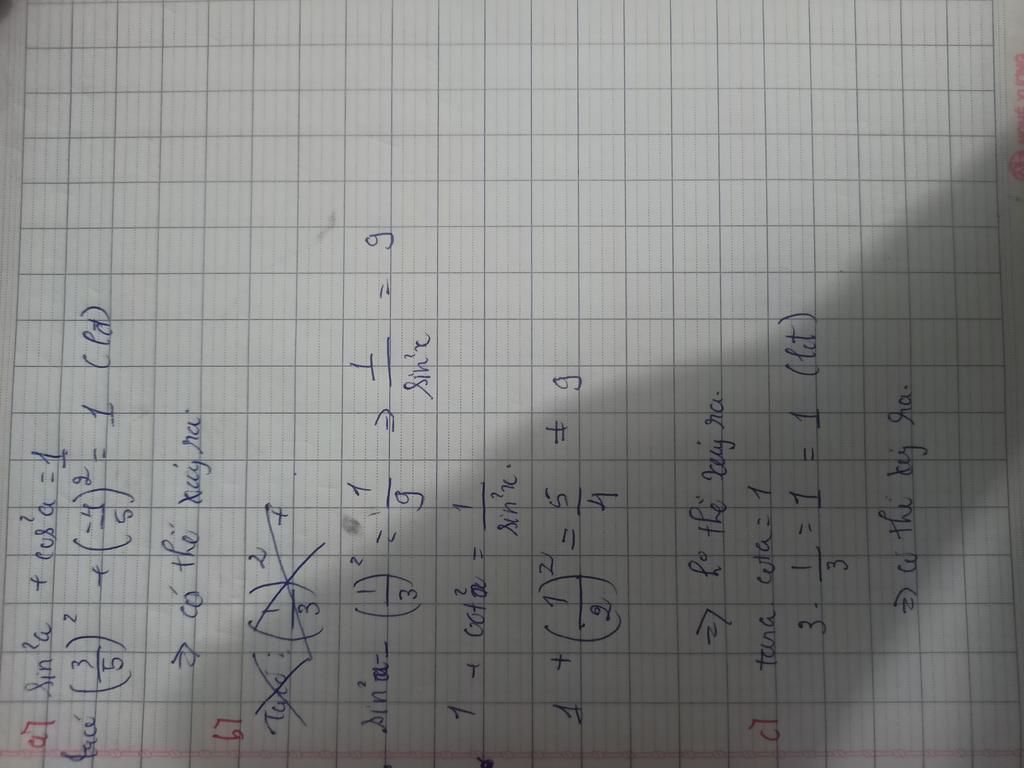 a) sin²a + cos²a = 1
(3/5)² + (-4/5)² = 1 (lđ)
⇒ có thể xảy ra
b)
(1/3)² +
sin²a = (1/3)² = 1/9 ⇒ 1/sin²x = 9
1 + cot²a = 1/sin²x.
1 + (1/2)² = 5/4 ≠ 9
⇒ ko thể xảy ra.
c) tana cota = 1
3 . 1/3 = 1 = 1 (lđt)
⇒ có thể xảy ra.